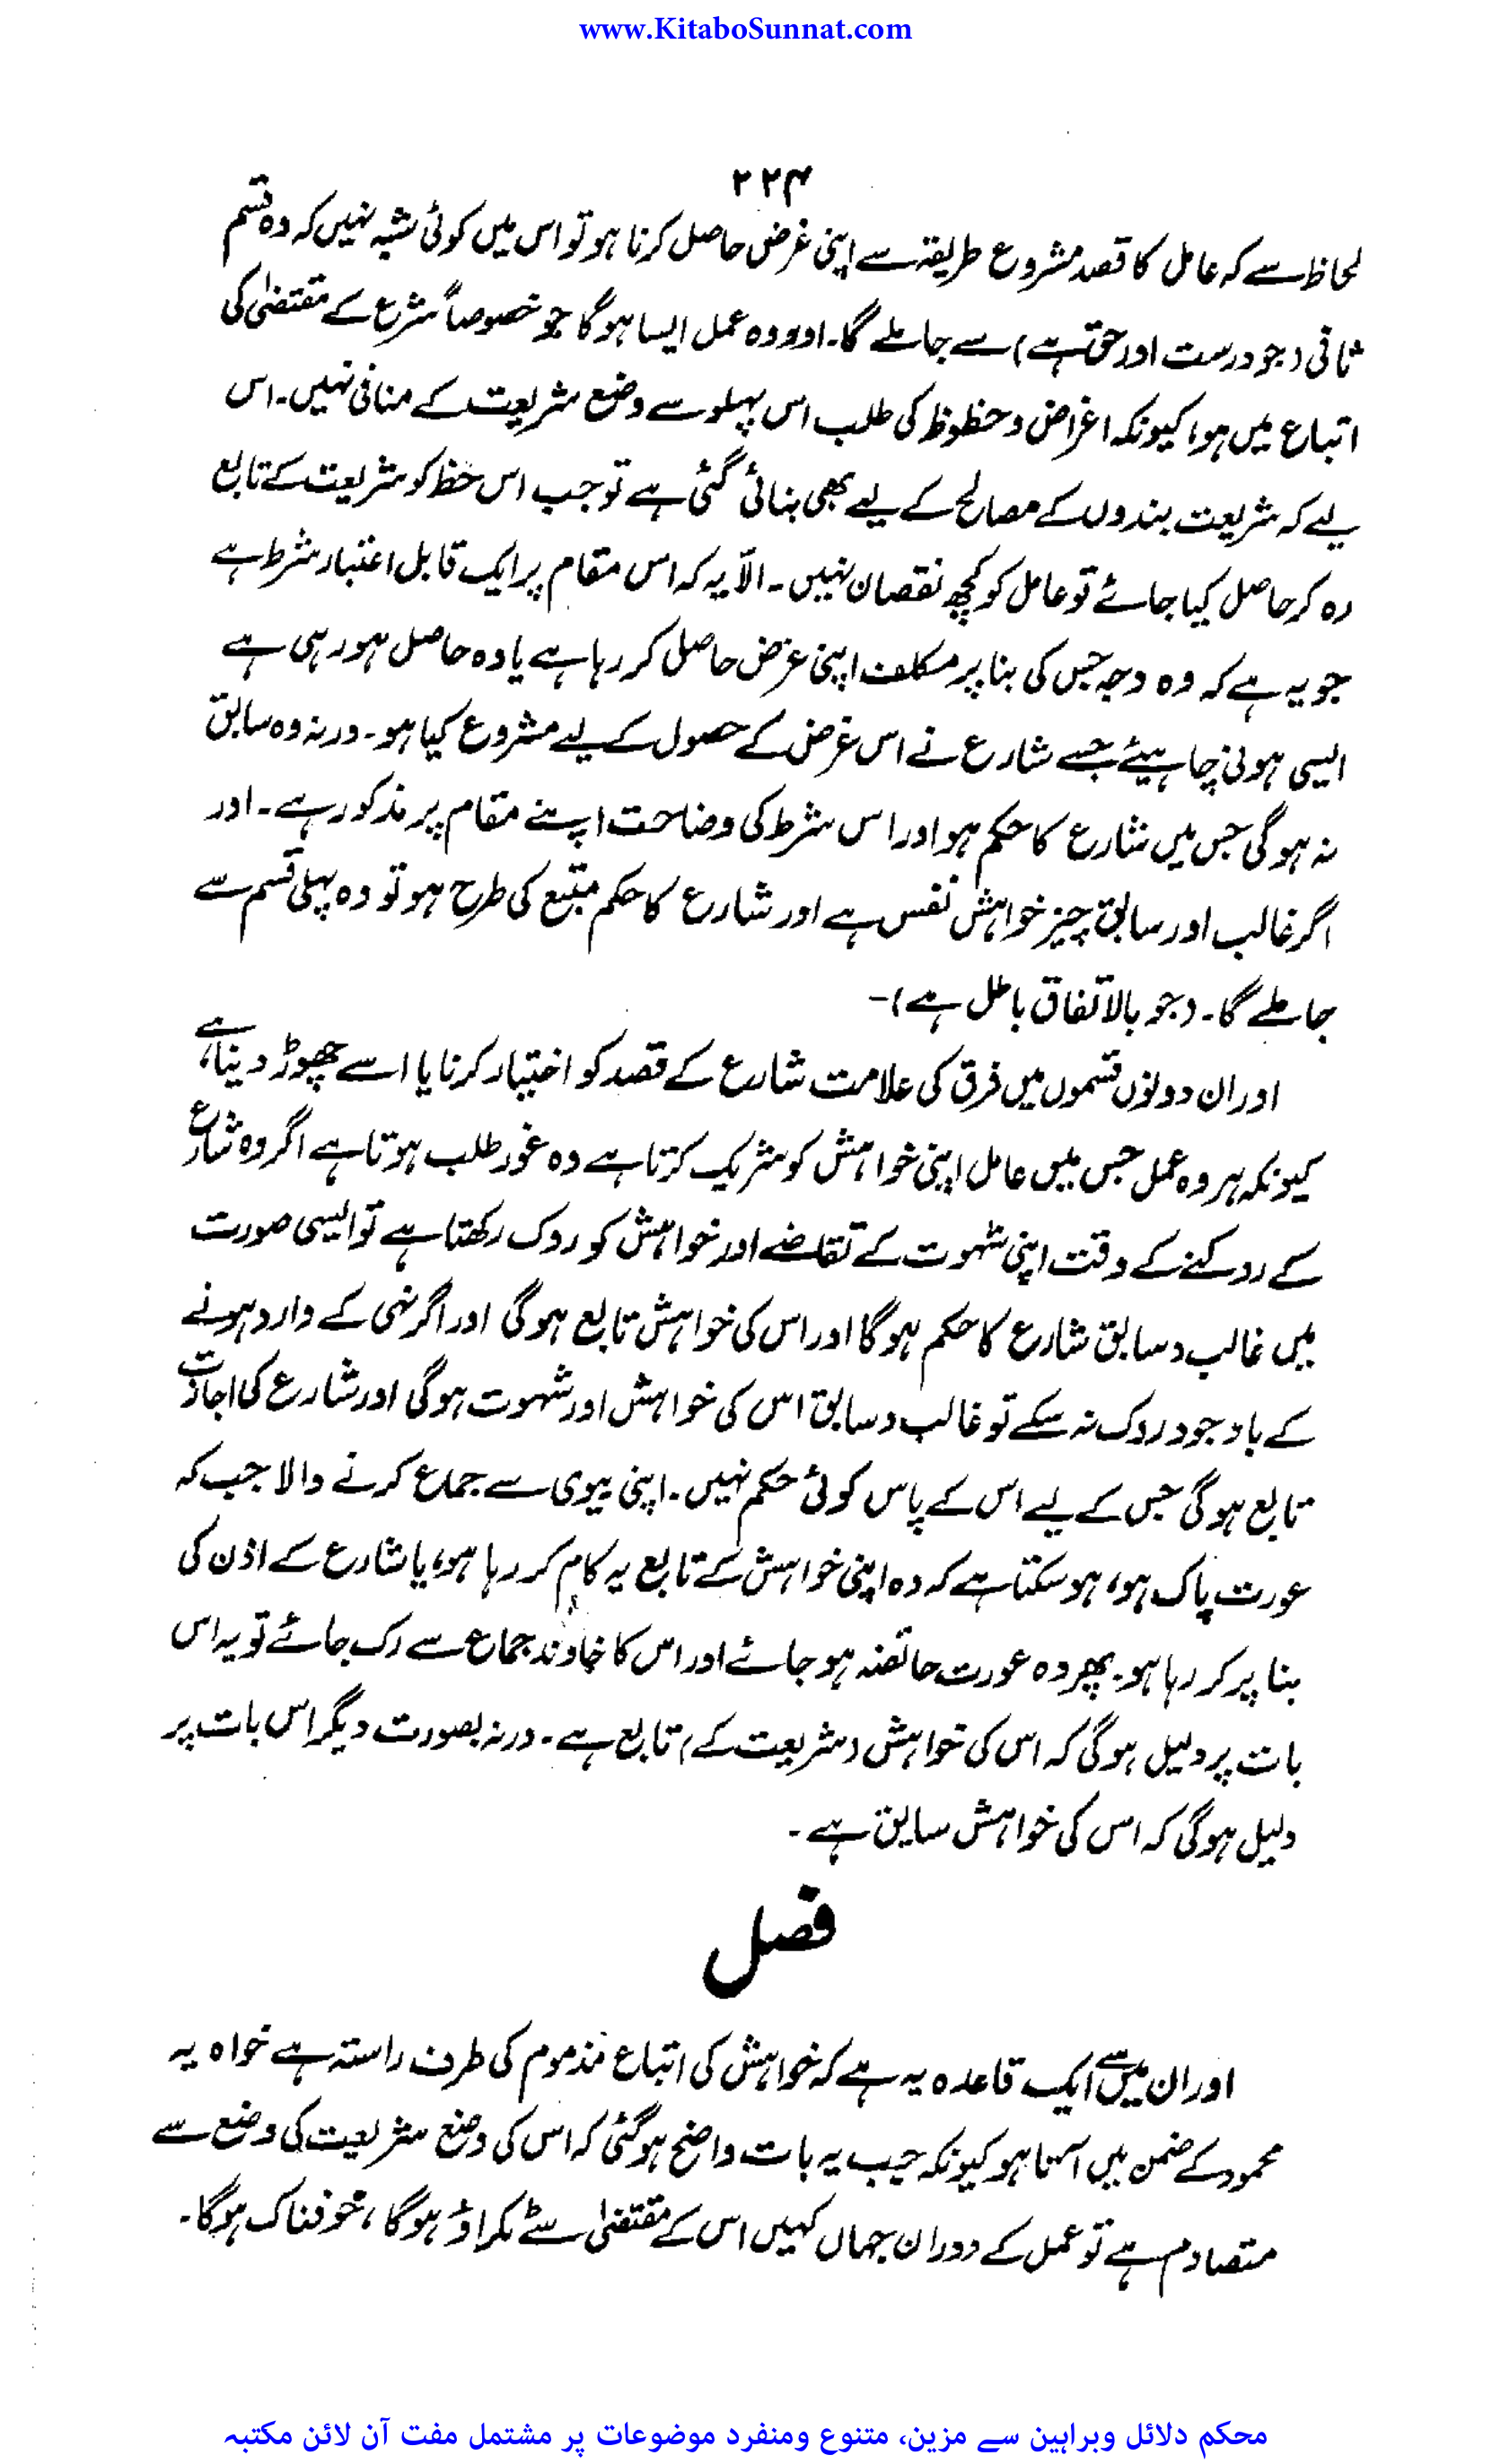 www.KitaboSunnat.com
۲۲۴
لحاظ سے کہ عامل کا قصد مشروع طریقہ سے اپنی غرض حاصل کرنا ہو تو اس میں کوئی شبہ نہیں کہ وہ قسم
ثانی (جو درست اور حق ہے) سے جا ملے گا۔ اور وہ عمل ایسا ہوگا جو خصوصاً شرع کے مقتضیٰ کی
اتباع میں ہو، کیونکہ اغراض و حظوظ کی طلب اس پہلو سے وضع شریعت کے منافی نہیں۔ اس
لیے کہ شریعت بندوں کے مصالح کے لیے بھی بنائی گئی ہے تو جب اس حظ کو شریعت کے تابع
رہ کر حاصل کیا جائے تو عامل کو کچھ نقصان نہیں۔ الّا یہ کہ اس مقام پر ایک قابل اعتبار شرط ہے
جو یہ ہے کہ وہ وجہ جس کی بنا پر مکلف اپنی غرض حاصل کر رہا ہے یا وہ حاصل ہو رہی ہے
ایسی ہونی چاہیئے جسے شارع نے اس غرض کے حصول کے لیے مشروع کیا ہو۔ ورنہ وہ سابق
نہ ہوگی جس میں شارع کا حکم ہو اور اس شرط کی وضاحت اپنے مقام پر مذکور ہے۔ اور
اگر غالب اور سابق چیز خواہش نفس ہے اور شارع کا حکم متبع کی طرح ہو تو وہ پہلی قسم سے
جا ملے گا۔ (جو بالاتفاق باطل ہے)۔
اور ان دونوں قسموں میں فرق کی علامت شارع کے قصد کو اختیار کرنا یا اسے چھوڑ دینا ہے،
کیونکہ ہر وہ عمل جس میں عامل اپنی خواہش کو شریک کرتا ہے وہ غور طلب ہوتا ہے اگر وہ شارع
کے روکنے کے وقت اپنی شہوت کے تقاضے اور خواہش کو روک رکھتا ہے تو ایسی صورت
میں غالب و سابق شارع کا حکم ہوگا اور اس کی خواہش تابع ہوگی اور اگر نہی کے وارد ہونے
کے باوجود روک نہ سکے تو غالب و سابق اس کی خواہش اور شہوت ہوگی اور شارع کی اجازت
تابع ہوگی جس کے لیے اس کے پاس کوئی حکم نہیں۔ اپنی بیوی سے جماع کرنے والا جب کہ
عورت پاک ہو، ہو سکتا ہے کہ وہ اپنی خواہش کے تابع یہ کام کر رہا ہو، یا شارع کے اذن کی
بنا پر کر رہا ہو۔ پھر وہ عورت حائضہ ہو جائے اور اس کا خاوند جماع سے رک جائے تو یہ اس
بات پر دلیل ہوگی کہ اس کی خواہش (شریعت کے) تابع ہے۔ ورنہ بصورت دیگر اس بات پر
دلیل ہوگی کہ اس کی خواہش سابق ہے۔
فصل
اور ان میں سے ایک قاعدہ یہ ہے کہ خواہش کی اتباع مذموم کی طرف راستہ ہے خواہ یہ
محمود کے ضمن میں آتا ہو کیونکہ جب یہ بات واضح ہوگئی کہ اس کی وضع شریعت کی وضع سے
متصادم ہے تو عمل کے دوران جہاں کہیں اس کے مقتضیٰ سے ٹکراؤ ہوگا، خوفناک ہوگا۔
محکم دلائل وبراہین سے مزین، متنوع ومنفرد موضوعات پر مشتمل مفت آن لائن مکتبہ